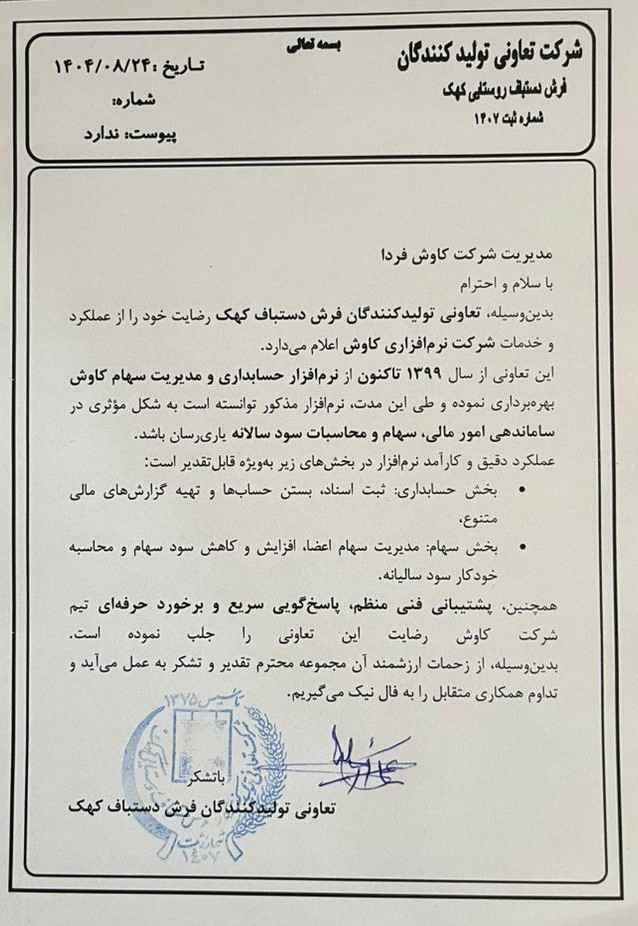 بسمه تعالی
شرکت تعاونی تولید کنندگان
فرش دستباف روستایی کهک
شماره ثبت ۱۴۰۷
تاریخ :۱۴۰۴/۰۸/۲۴
شماره:
پیوست: ندارد
مدیریت شرکت کاوش فردا
با سلام و احترام
بدین‌وسیله، تعاونی تولیدکنندگان فرش دستباف کهک رضایت خود را از عملکرد
و خدمات شرکت نرم‌افزاری کاوش اعلام می‌دارد.
این تعاونی از سال ۱۳۹۹ تاکنون از نرم‌افزار حسابداری و مدیریت سهام کاوش
بهره‌برداری نموده و طی این مدت، نرم‌افزار مذکور توانسته است به شکل مؤثری در
ساماندهی امور مالی، سهام و محاسبات سود سالانه یاری‌رسان باشد.
عملکرد دقیق و کارآمد نرم‌افزار در بخش‌های زیر به‌ویژه قابل‌تقدیر است:
• بخش حسابداری: ثبت اسناد، بستن حساب‌ها و تهیه گزارش‌های مالی
متنوع،
• بخش سهام: مدیریت سهام اعضا، افزایش و کاهش سود سهام و محاسبه
خودکار سود سالیانه.
همچنین، پشتیبانی فنی منظم، پاسخ‌گویی سریع و برخورد حرفه‌ای تیم
شرکت کاوش رضایت این تعاونی را جلب نموده است.
بدین‌وسیله، از زحمات ارزشمند آن مجموعه محترم تقدیر و تشکر به عمل می‌آید و
تداوم همکاری متقابل را به فال نیک می‌گیریم.
تاسیس ۱۳۷۵
باتشکر
تعاونی تولیدکنندگان فرش دستباف کهک
شماره ثبت
۱۴۰۷